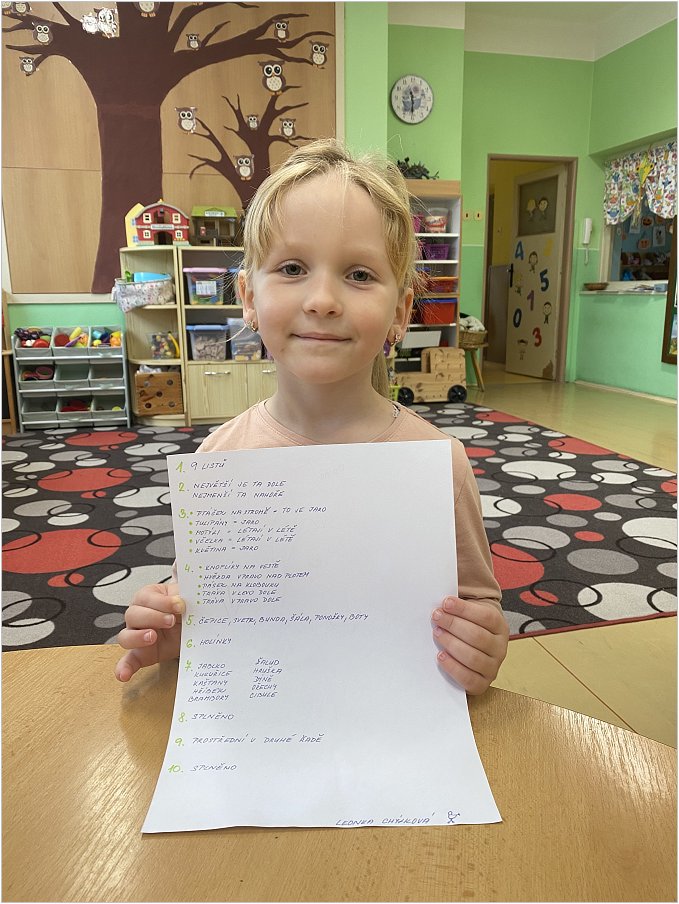 1. 9 LISTŮ
2. NEJVĚTŠÍ JE TA DOLE
NEJMENŠÍ TA NAHOŘE
3. • PTÁČEK NA STROMĚ = TO JE JARO
• TULIPÁNY = JARO
• MOTÝLI = LÉTAJÍ V LÉTĚ
• VČELKA = LÉTAJÍ V LÉTĚ
• KVĚTINA = JARO
4. • KNOFLÍKY NA VESTĚ
• HVĚZDA VPRAVO NAD PLOTEM
• PÁSEK NA KLOBOUKU
• TRÁVA VLEVO DOLE
• TRÁVA VPRAVO DOLE
5. ČEPICE, SVETR, BUNDA, ŠÁLA, PONOŽKY, BOTY
6. HOLÍNKY
7. JABLKO ŽALUD
KUKUŘICE HRUŠKA
KAŠTANY DÝNĚ
HŘIBEČKY OŘECHY
BRAMBORY CIBULE
8. SPLNĚNO
9. PROSTŘEDNÍ V DRUHÉ ŘADĚ
10. SPLNĚNO
LEONKA
4
1 5
2
0 3